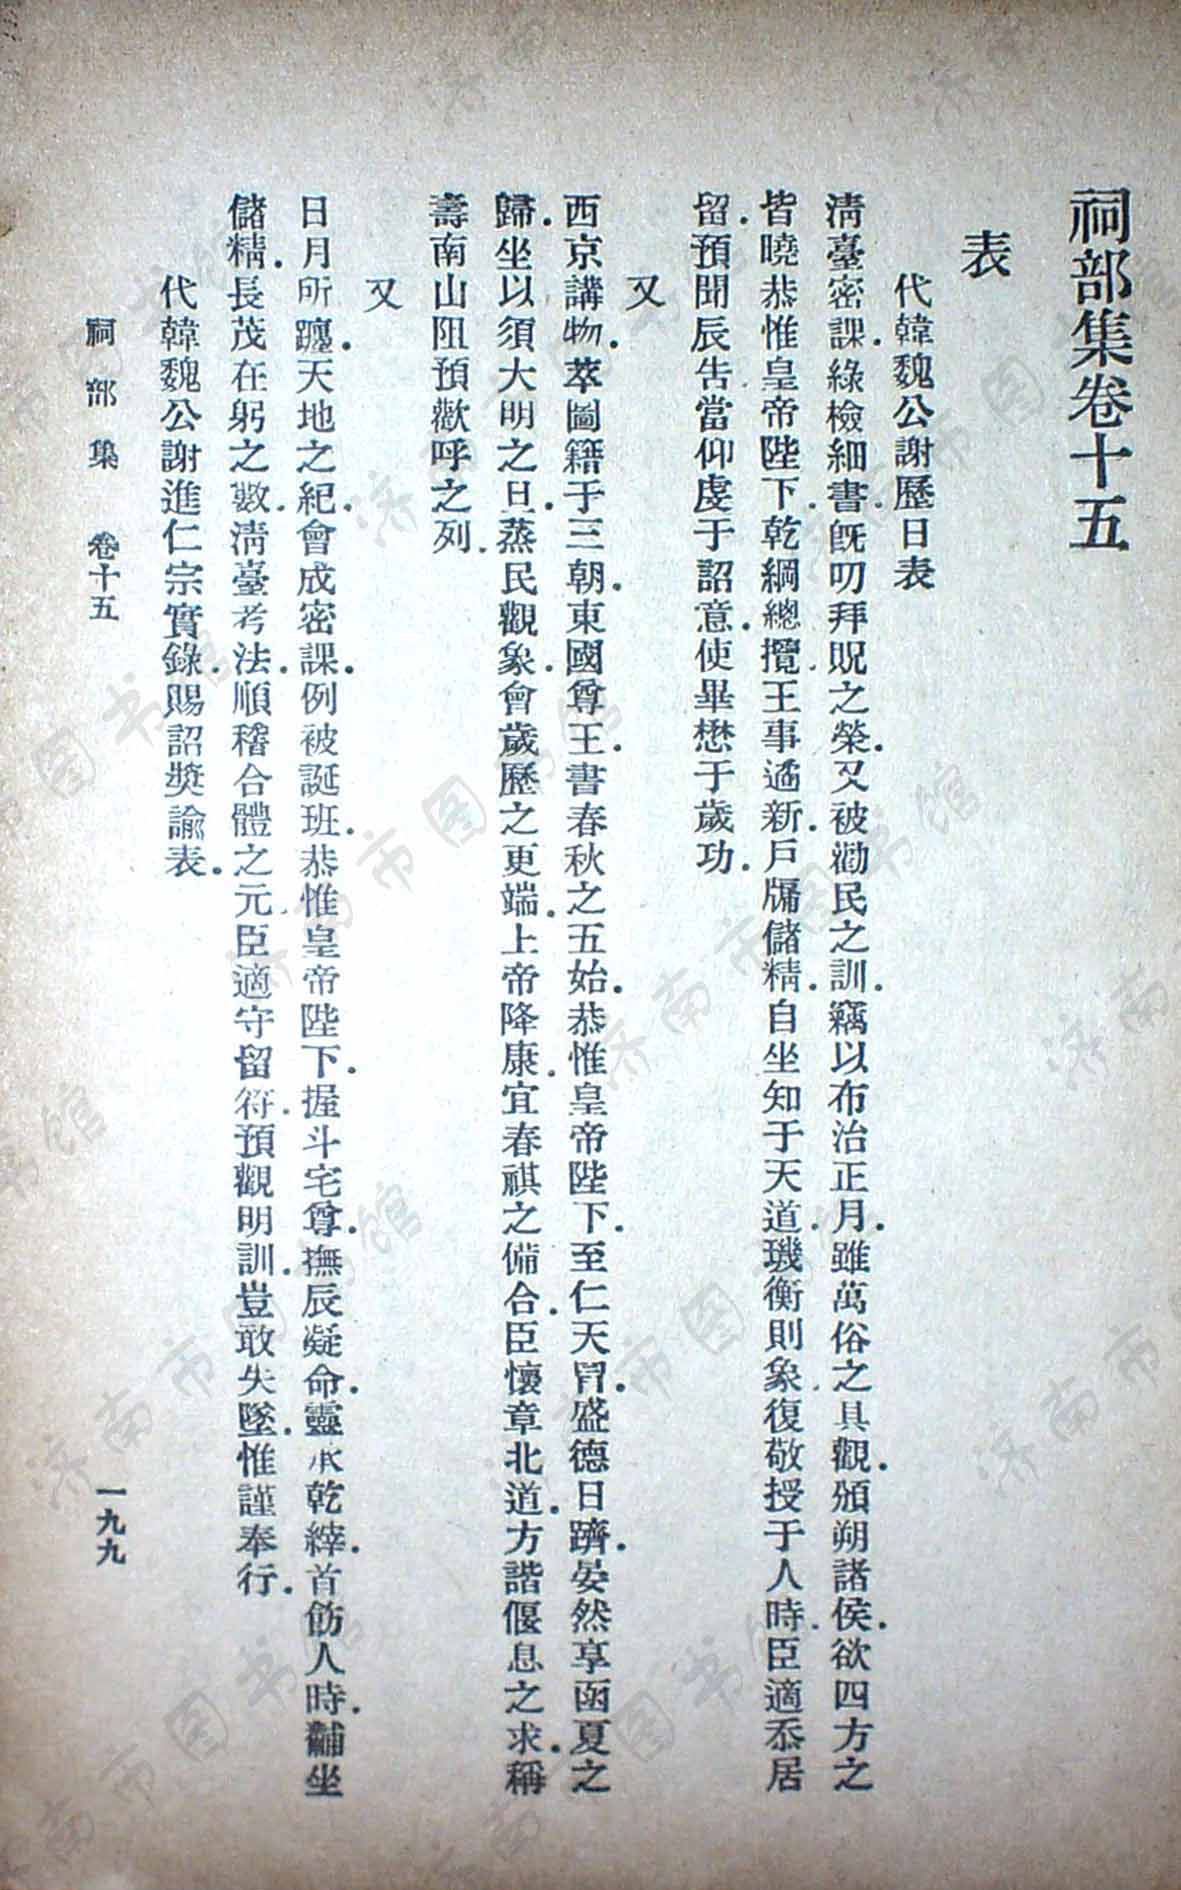 祠部集卷十五
表
代韓魏公謝歷日表
清臺密課.綠檢細書.旣叨拜貺之榮.又被勸民之訓.竊以布治正月.雖萬俗之具觀.頒朔諸侯.欲四方之
皆曉.恭惟皇帝陛下.乾綱總攬.王事遹新.戶牖儲精.自坐知于天道.璣衡則象.復敬授于人時.臣適忝居
留.預聞辰告.當仰虔于詔意.使畢懋于歲功.
又
西京講物.萃圖籍于三朝.東國尊王.書春秋之五始.恭惟皇帝陛下.至仁天冒.盛德日躋.晏然享函夏之
歸.坐以須大明之旦.蒸民觀象.會歲歷之更端.上帝降康.宜春祺之備合.臣懷章北道.方諧偃息之求.稱
壽南山.阻預歡呼之列.
又
日月所躔.天地之紀.會成密課.例被誕班.恭惟皇帝陛下.握斗宅尊.撫辰凝命.靈承乾緯.首飭人時.黼坐
儲精.長茂在躬之數.清臺考法.順稽合體之元.臣適守留符.預觀明訓.豈敢失墜.惟謹奉行.
代韓魏公謝進仁宗實錄.賜詔獎諭表.
祠部集 卷十五
一九九